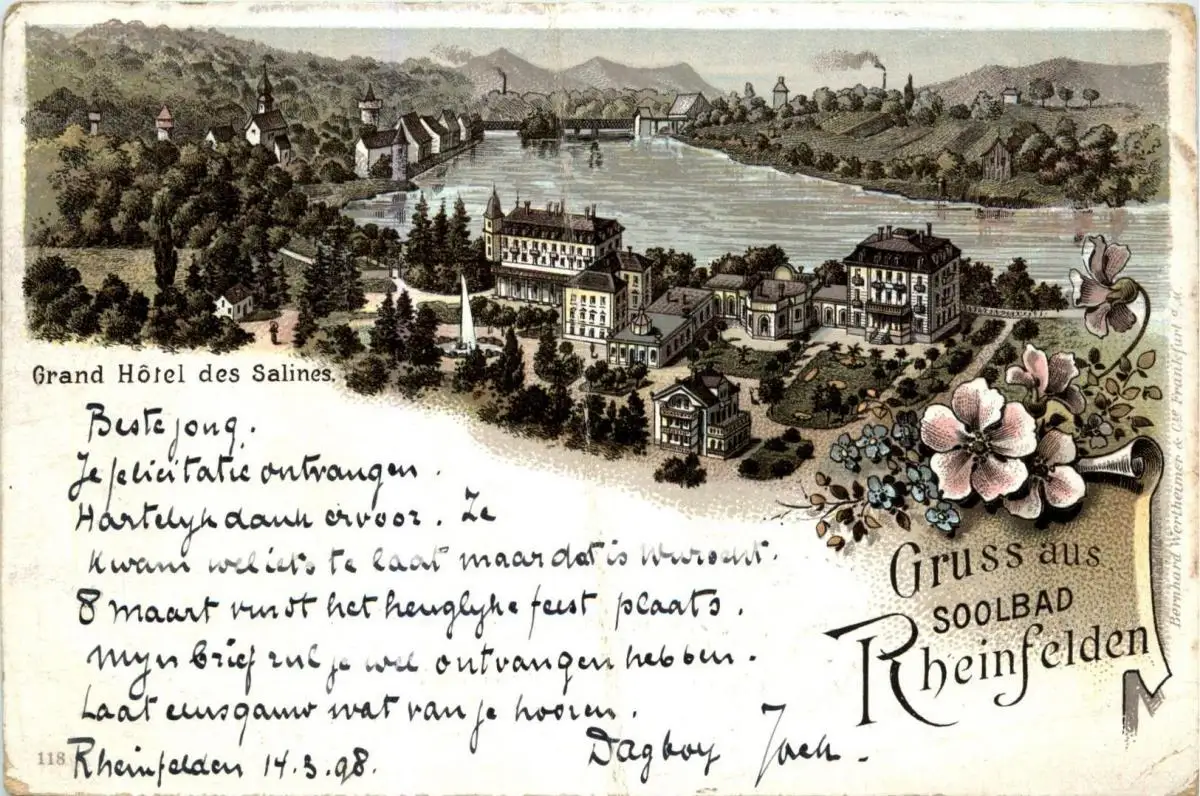 Grand Hôtel des Salines.
Beste jong.
Je felicitatie ontvangen.
Hartelyk dank ervoor. Ze
kwam wel iets te laat maar dat is Wurscht.
8 maart vindt het heuglyke feest plaats.
Myn brief zul je wel ontvangen hebben.
Laat eens gauw wat van je hooren.
Dagboy Jack.
118
Rheinfelden 14.3.98.
Gruss aus
SOOLBAD
Rheinfelden
Bernhard Wertheimer & Cie Frankfurt a. M.